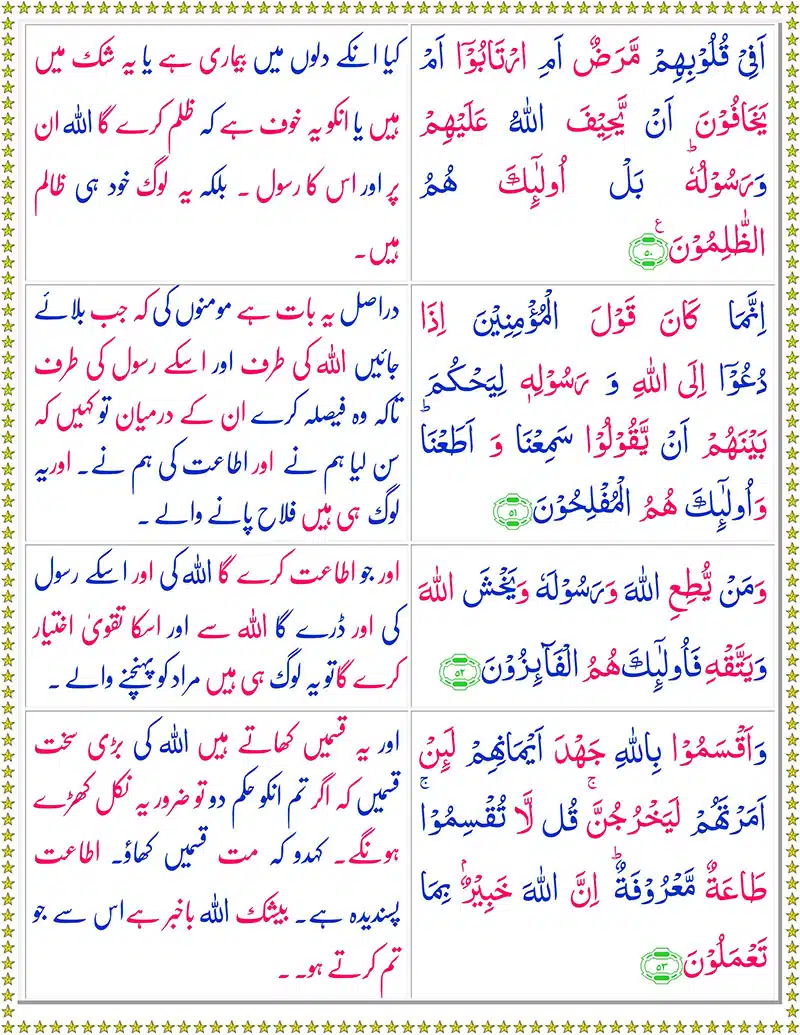 اَفِىۡ قُلُوۡبِهِمۡ مَّرَضٌ اَمِ ارۡتَابُوۡۤا اَمۡ
يَخَافُوۡنَ اَنۡ يَّحِيۡفَ اللّٰهُ عَلَيۡهِمۡ
وَرَسُوۡلُهٗ‌ؕ بَلۡ اُولٰٓٮِٕكَ هُمُ
الظّٰلِمُوۡنَ ۵۰
کیا انکے دلوں میں بیماری ہے یا یہ شک میں
ہیں یا انکو یہ خوف ہے کہ ظلم کرے گا اللہ ان
پر اور اس کا رسول ۔ بلکہ یہ لوگ خود ہی ظالم
ہیں۔
اِنَّمَا كَانَ قَوۡلَ الۡمُؤۡمِنِيۡنَ اِذَا
دُعُوۡۤا اِلَى اللّٰهِ وَ رَسُوۡلِهٖ لِيَحۡكُمَ
بَيۡنَهُمۡ اَنۡ يَّقُوۡلُوۡا سَمِعۡنَا وَ اَطَعۡنَا‌ؕ
وَاُولٰٓٮِٕكَ هُمُ الۡمُفۡلِحُوۡنَ ۵۱
دراصل یہ بات ہے مومنوں کی کہ جب بلائے
جائیں اللہ کی طرف اور اسکے رسول کی طرف
تاکہ وہ فیصلہ کرے ان کے درمیان تو کہیں کہ
سن لیا ہم نے اور اطاعت کی ہم نے۔ اور یہ
لوگ ہی ہیں فلاح پانے والے ۔
وَمَنۡ يُّطِعِ اللّٰهَ وَرَسُوۡلَهٗ وَيَخۡشَ اللّٰهَ
وَيَتَّقۡهِ فَاُولٰٓٮِٕكَ هُمُ الۡفَآٮِٕزُوۡنَ ۵۲
اور جو اطاعت کرے گا اللہ کی اور اسکے رسول
کی اور ڈرے گا اللہ سے اور اسکا تقویٰ اختیار
کرے گا تو یہ لوگ ہی ہیں مراد کو پہنچنے والے ۔
وَاَقۡسَمُوۡا بِاللّٰهِ جَهۡدَ اَيۡمَانِهِمۡ لَٮِٕنۡ
اَمَرۡتَهُمۡ لَيَخۡرُجُنَّ‌ۚ قُل لَّا تُقۡسِمُوۡا‌ۚ
طَاعَةٌ مَّعۡرُوۡفَةٌ‌ؕ اِنَّ اللّٰهَ خَبِيۡرٌۢ بِمَا
تَعۡمَلُوۡنَ ۵۳
اور یہ قسمیں کھاتے ہیں اللہ کی بڑی سخت
قسمیں کہ اگر تم انکو حکم دو تو ضرور یہ نکل کھڑے
ہونگے۔ کہدو کہ مت قسمیں کھاؤ۔ اطاعت
پسندیدہ ہے۔ بیشک اللہ باخبر ہے اس سے جو
تم کرتے ہو۔ ۔